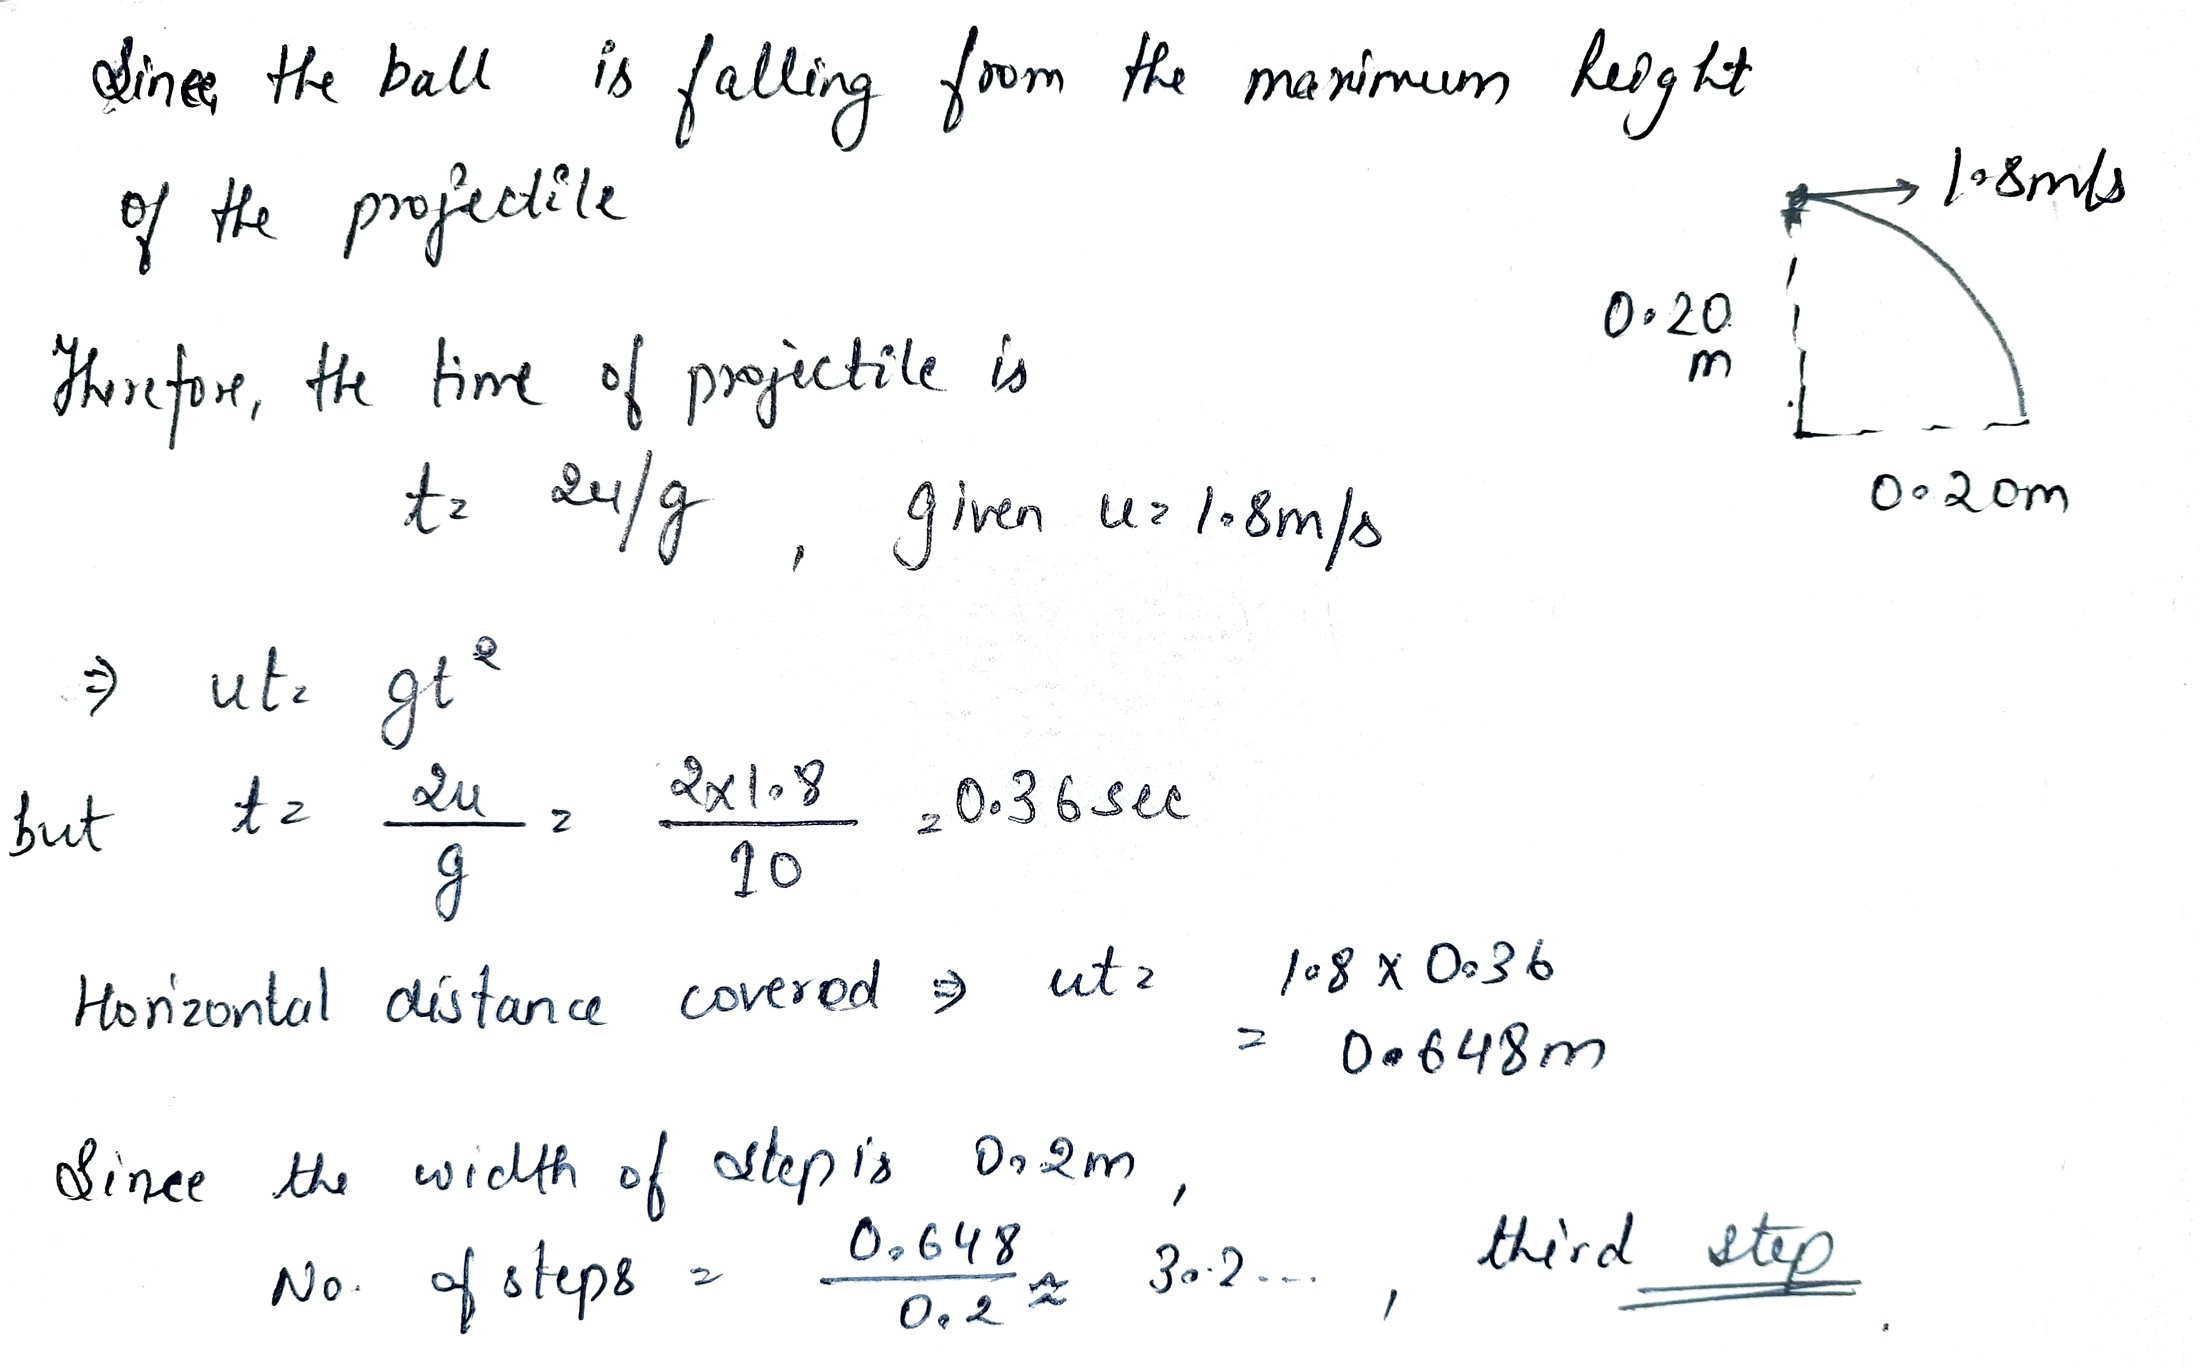 Since the ball is falling from the maximum height
of the projectile
1.8m/s
0.20
m
0.20m
Therefore, the time of projectile is
t = 2u/g , given u = 1.8m/s
⇒ ut = gt²
but t = 2u/g = 2x1.8/10 = 0.36 sec
Horizontal distance covered ⇒ ut = 1.8 x 0.36
= 0.648m
Since the width of step is 0.2m,
No. of steps = 0.648/0.2 ≈ 3.2... , third step.